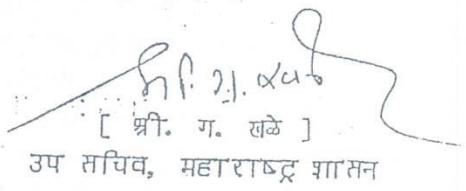 [ श्री. ग. खळे ]
उप सचिव, महाराष्ट्र शासन